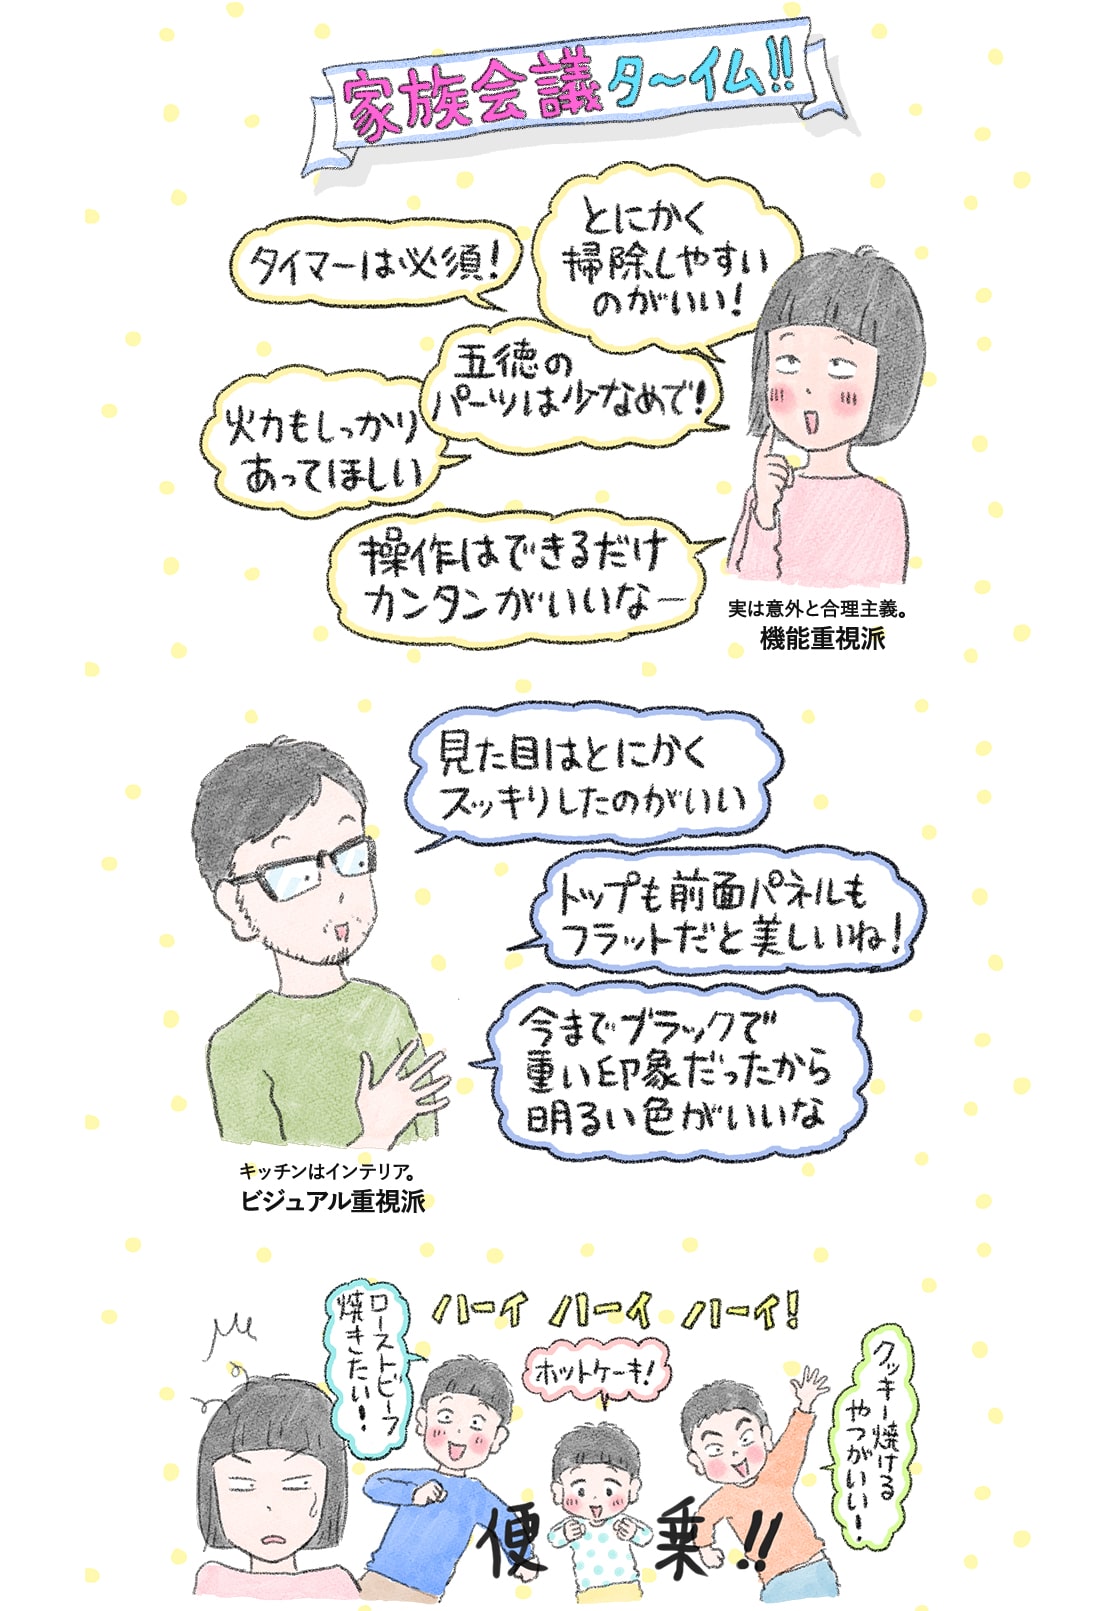 家族会議タ〜イム!!
タイマーは必須!
とにかく
掃除しやすい
のがいい!
五徳の
パーツは少なめで!
火力もしっかり
あってほしい
操作はできるだけ
カンタンがいいなー
実は意外と合理主義。
機能重視派
見た目はとにかく
スッキリしたのがいい
トップも前面パネルも
フラットだと美しいね!
今までブラックで
重い印象だったから
明るい色がいいな
キッチンはインテリア。
ビジュアル重視派
ハーイ ハーイ ハーイ!
ローストビーフ
焼きたい!
ホットケーキ!
クッキー焼ける
やつがいい!
便乗!!